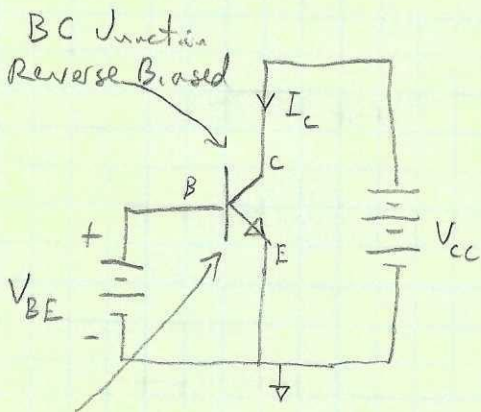 BC Junction
Reverse Biased
I_C
C
B
E
+
V_BE
-
V_CC